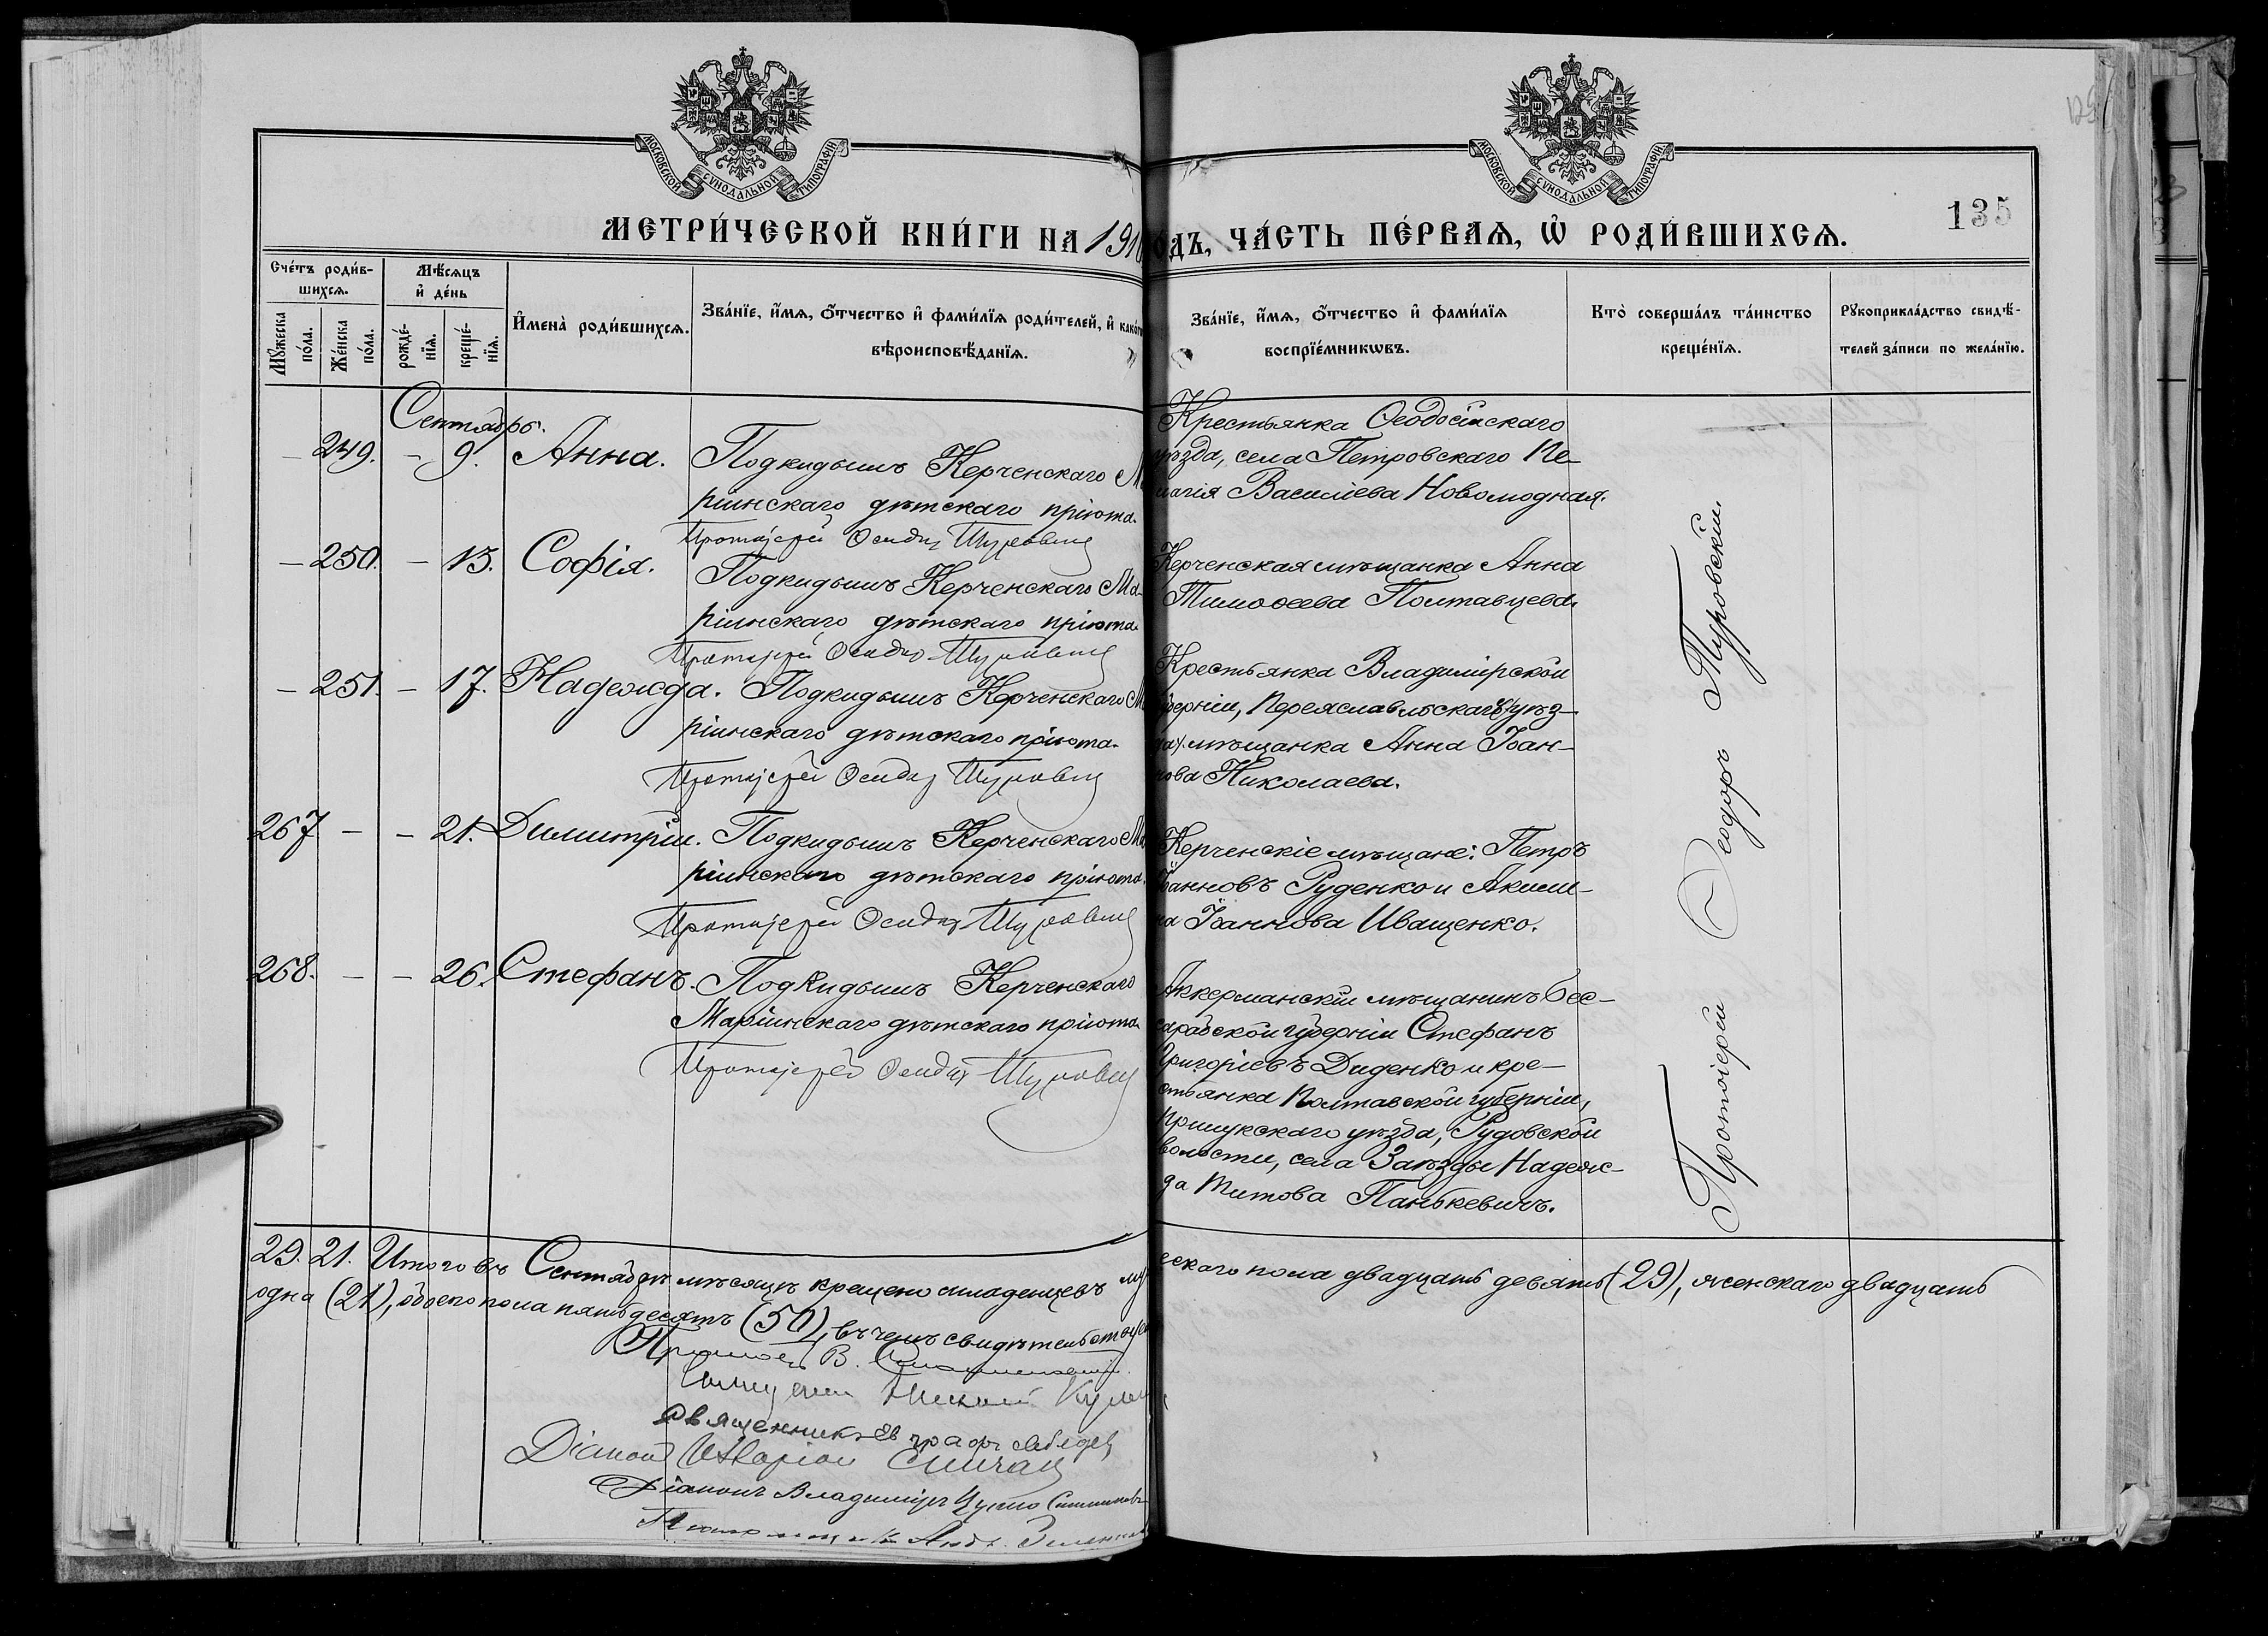 МОСКОВСКОЙ СѴНОДАЛЬНОЙ ТИПОГРАФІИ
МОСКОВСКОЙ СѴНОДАЛЬНОЙ ТИПОГРАФІИ
135
МЕТРИ́ЧЕСКОЙ КНИ́ГИ НА 191
ОДЪ, ЧА́СТЬ ПЕ́РВАѦ, Ѡ҆ РОДИ́ВШИХСѦ.
Сче́тъ роди́в-
шихсѧ.
Мѣ́сѧцъ
и҆ де́нь
Мꙋ́жеска
по́ла.
Же́нска
по́ла.
рожде́-
нїѧ.
креще́-
нїѧ.
И҆мена̀ роди́вшихсѧ.
Зва́нїе, и҆́мѧ, ѻ҆́тчество и҆ фами́лїѧ роди́телей, и҆ како́г
вѣроисповѣ́данїѧ.
Зва́нїе, и҆́мѧ, ѻ҆́тчество и҆ фами́лїѧ
воспрїе́мникѡвъ.
Кто̀ соверша́лъ та́инство
креще́нїѧ.
Рꙋкоприкла́дство свидѣ́-
телей за́писи по жела́нїю.
Сентябрь.
— 249. — 9. Анна. Подкидышъ Керченскаго М
ріинскаго дѣтскаго пріюта.
Протоіерей Ѳеодоръ Туровскій
Крестьянка Ѳеодосійскаго
уѣзда, села Петровскаго Пе-
лагія Василіева Новомодная.
— 250. — 13. Софія. Подкидышъ Керченскаго Ма-
ріинскаго дѣтскаго пріюта.
Протоіерей Ѳеодоръ Туровскій
Керченская мѣщанка Анна
Тимоѳеева Полтавцева.
— 251. — 17. Надежда. Подкидышъ Керченскаго М
ріинскаго дѣтскаго пріюта.
Протоіерей Ѳеодоръ Туровскій
Крестьянка Владимірской
губерніи, Переяславльскаго уѣз-
да мѣщанка Анна Іоан-
нова Николаева.
267. — — 21. Димитрій. Подкидышъ Керченскаго Ма
ріинскаго дѣтскаго пріюта.
Протоіерей Ѳеодоръ Туровскій
Керченскіе мѣщане: Петръ
Іоанновъ Руденко и Акили-
на Іоаннова Иващенко.
268. — — 26. Стефанъ. Подкидышъ Керченскаго
Маріинскаго дѣтскаго пріюта
Протоіерей Ѳеодоръ Туровскій
Аккерманскій мѣщанинъ Бес-
сарабской губерніи Стефанъ
Григоріевъ Диденко и кре-
стьянка Полтавской губерніи,
Прилукскаго уѣзда, Рудовской
волости, села Заѣзды Надеж-
да Титова Панькевичъ.
Протоіерей Ѳеодоръ Туровскій.
29. 21. Итого въ Сентябрѣ мѣсяцѣ крещено младенцевъ му
ескаго пола двадцать девять (29), женскаго двадцать
одна (21), обоего пола пятьдесятъ (50), въ чемъ свидѣтельствуем
В.
Священникъ Евграфъ Лебедев
Діаконъ Иларіонъ
Діаконъ Владиміръ
Псаломщикъ Анд.